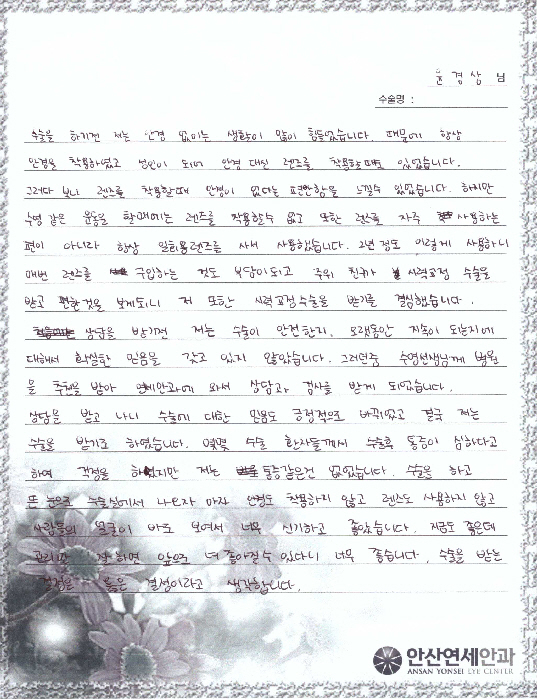 윤경상 님
수술명 :
수술을 하기전 저는 안경 없이는 생활이 많이 힘들었습니다. 때문에 항상
안경을 착용하였고 성인이 되어 안경 대신 렌즈를 착용할때도 있었습니다.
그러다 보니 렌즈를 착용할때 안경이 없다는 편안함을 느낄수 있었습니다. 하지만
수영 같은 운동을 할때에는 렌즈를 착용할수 없고 또한 렌즈를 자주 사용하는
편이 아니라 항상 일회용렌즈를 사서 사용했습니다. 2년 정도 이렇게 사용하니
매번 렌즈를 구입하는 것도 부담이되고 주위 친구가 시력교정 수술을
받고 편한것을 보게되니 저 또한 시력교정수술을 받기를 결심했습니다.
상담을 받기전 저는 수술이 안전한지, 오랫동안 지속이 되는지에
대해서 확실한 믿음을 갖고 있지 않았습니다. 그러던중 수영선생님께 병원
을 추천을 받아 연세안과에 와서 상담과 검사를 받게 되었습니다.
상담을 받고 나니 수술에 대한 믿음도 긍정적으로 바뀌었고 결국 저는
수술을 받기로 하였습니다. 몇몇 수술 환자들께서 수술후 통증이 심하다고
하여 걱정을 하였지만 저는 통증같은건 없었습니다. 수술을 하고
뜬 눈으로 수술실에서 나오자 마자 안경도 착용하지 않고 렌즈도 사용하지 않고
사람들의 얼굴이 바로 보여서 너무 신기하고 좋았습니다. 지금도 좋은데
관리만 잘 하면 앞으로 더 좋아질수 있다니 너무 좋습니다. 수술을 받는
결정은 옳은 결정이라고 생각합니다.
안산연세안과
ANSAN YONSEI EYE CENTER